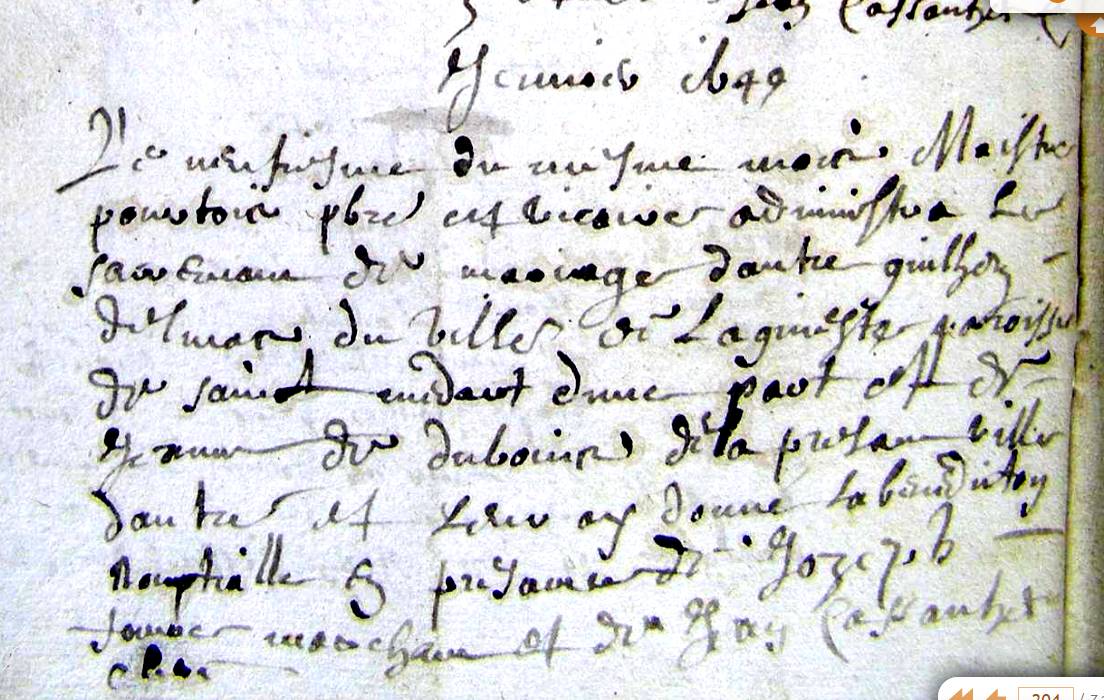 Jean Cassanhes
Jenvier 1649
Le neufiesme du mesme mois Maistre
pourtois pbre et vicaire administra Le
sacremant de mariage dautre guilhen
delmas du villes de Lagineste paroisse
de sainct medart dune part et de
Jeanne de duboucs dela presant ville
dautre et Leur ay donné La benedition
nouptialle En presance de Jozeph
marchant et de Jean Cassanhes
clerc
204